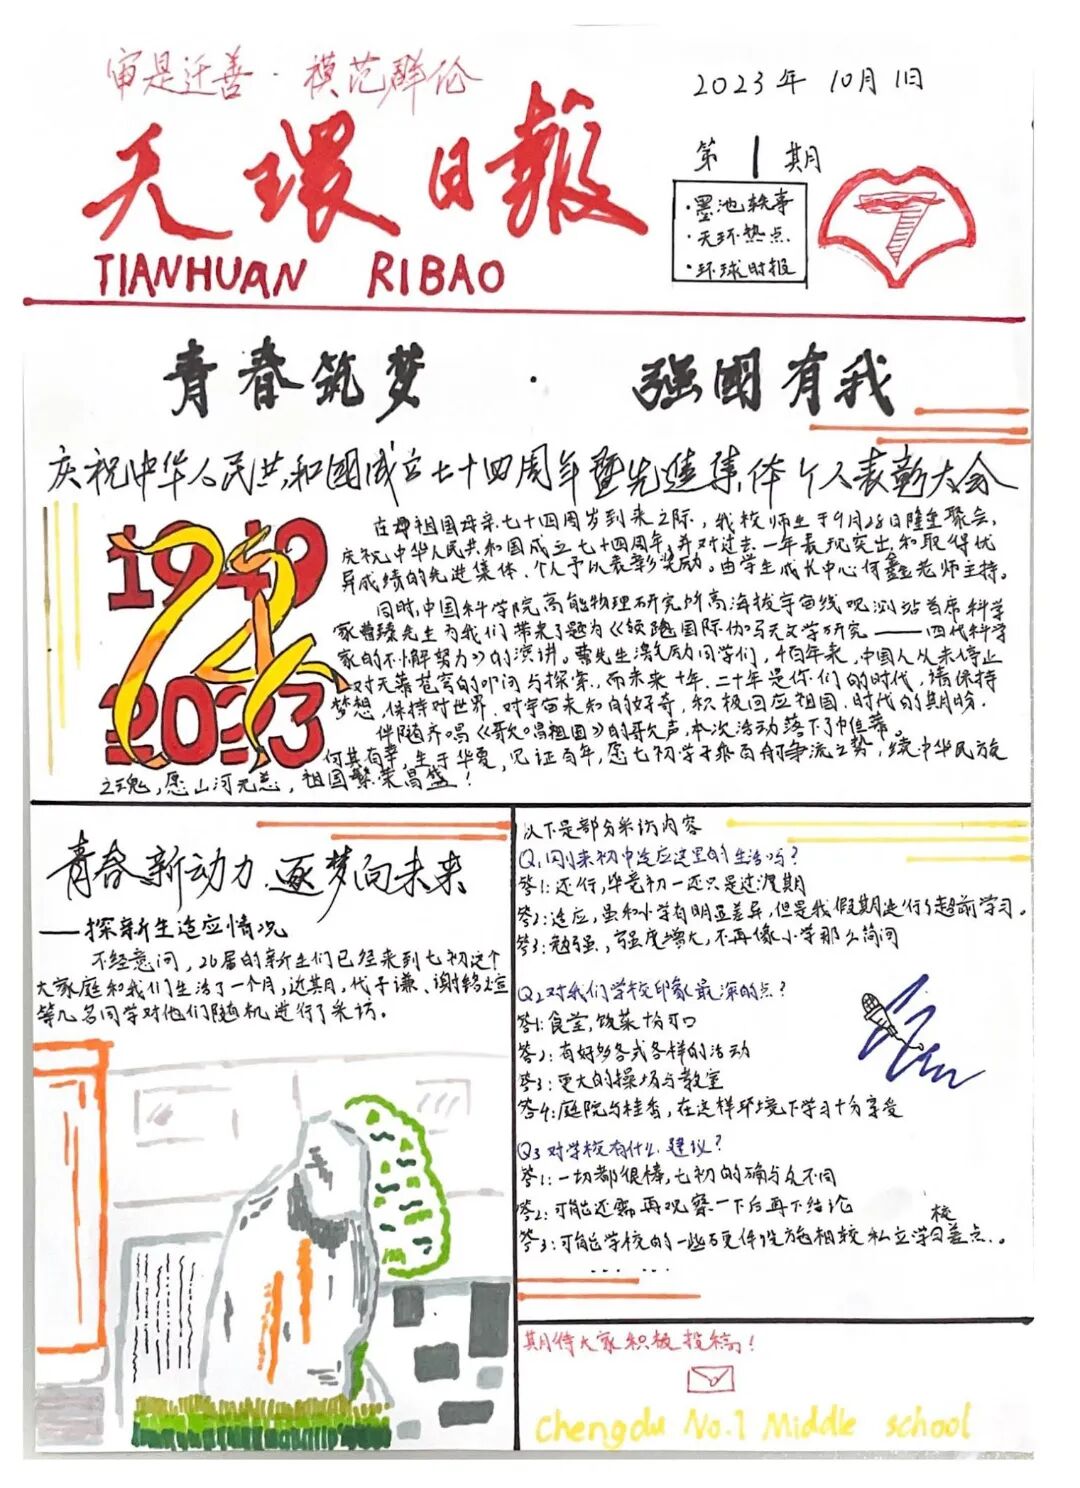 审是迁善·模范群伦
2023年 10月1日
天環日報
第1期
TIANHUAN RIBAO
·墨池轶事
·天环热点
·环球时报
7
青春筑梦 · 强國有我
庆祝中华人民共和國成立七十四周年暨先進集体个人表彰大会
1949
74
2023
在我祖国母亲七十四周岁到来之际，我校师生于9月28日隆重聚会，
庆祝中华人民共和国成立七十四周年，并对过去一年表现突出和取得优
异成绩的先进集体、个人予以表彰奖励。由学生成长中心何鑫老师主持。
同时，中国科学院高能物理研究所高海拔宇宙线观测站首席科学
家曹臻先生为我们带来了题为《领跑国际伽马天文学研究——四代科学
家的不懈努力》的演讲。曹先生激励同学们，千百年来，中国人从未停止
对天幕苍穹的叩问与探索，而未来十年、二十年是你们的时代，请保持
梦想，保持对世界、对宇宙未知的好奇，积极回应祖国、时代的期盼。
伴随齐唱《歌唱祖国》的歌声，本次活动落下帷幕。
何其有幸，生于华夏，见证百年，愿七初学子乘百舸争流之势，续中华民族
之魂，愿山河无恙，祖国繁荣昌盛！
青春新动力，逐梦向未来
——探新生适应情况
不经意间，26届的新生们已经来到七初这个
大家庭和我们生活了一个月，这其月，代子谦、谢铭煊
等几名同学对他们随机进行了采访。
以下是部分采访内容
Q1刚来初中适应这里的生活吗？
答1：还行，毕竟初一还只是过渡期
答2：适应，虽和小学有明显差异，但是我假期进行了超前学习。
答3：勉强，强度增大，不再像小学那么简间
Q2对我们学校印象最深的点？
答1：食堂，饭菜怡可口
答2：有好多各式各样的活动
答3：更大的操场与教室
答4：庭院与桂香，在这样环境下学习十分享受
Q3对学校有什么建议？
答1：一切都很棒，七初的确与众不同
答2：可能还需再观察一下后再下结论
答3：可能学校的一些硬件设施相较私立学校差点。。
…… ……
期待大家积极投稿！
Chengdu No.7 Middle school